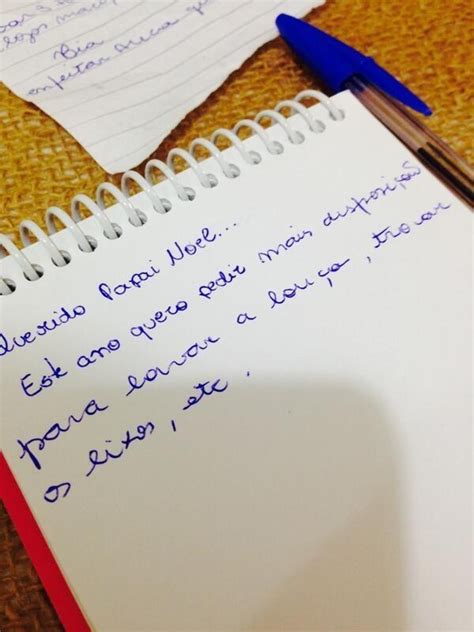 Dia
enfeitar
Querido Papai Noel....
Este ano quero pedir mais disposição
para lavar a louça, trocar
os lixos, etc.